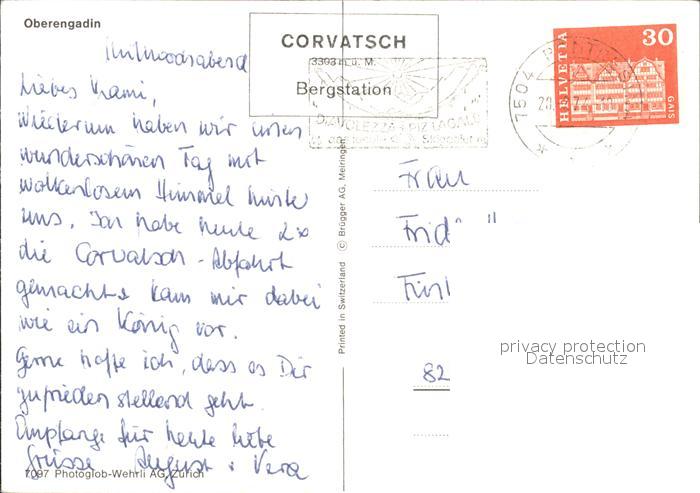 Oberengadin
Mittwochabend
Liebes Mami,
Wiederum haben wir einen
wunderschönen Tag mit
wolkenlosem Himmel hinter
uns. Ich habe heute 2x
die Corvatsch-Abfahrt
gemacht & kam mir dabei
wie ein König vor.
Gerne hoffe ich, dass es Dir
zufriedenstellend geht.
Empfange für heute liebe
Grüsse August & Vera
7097 Photoglob-Wehrli AG, Zürich
CORVATSCH
3303 m ü. M.
Bergstation
DIAVOLEZZA + PIZ LAGALB
Printed in Switzerland © Brügger AG, Meiringen
7504 PONTRESINA
HELVETIA
30
GAIS
Frau
Frid
82
privacy protection
Datenschutz